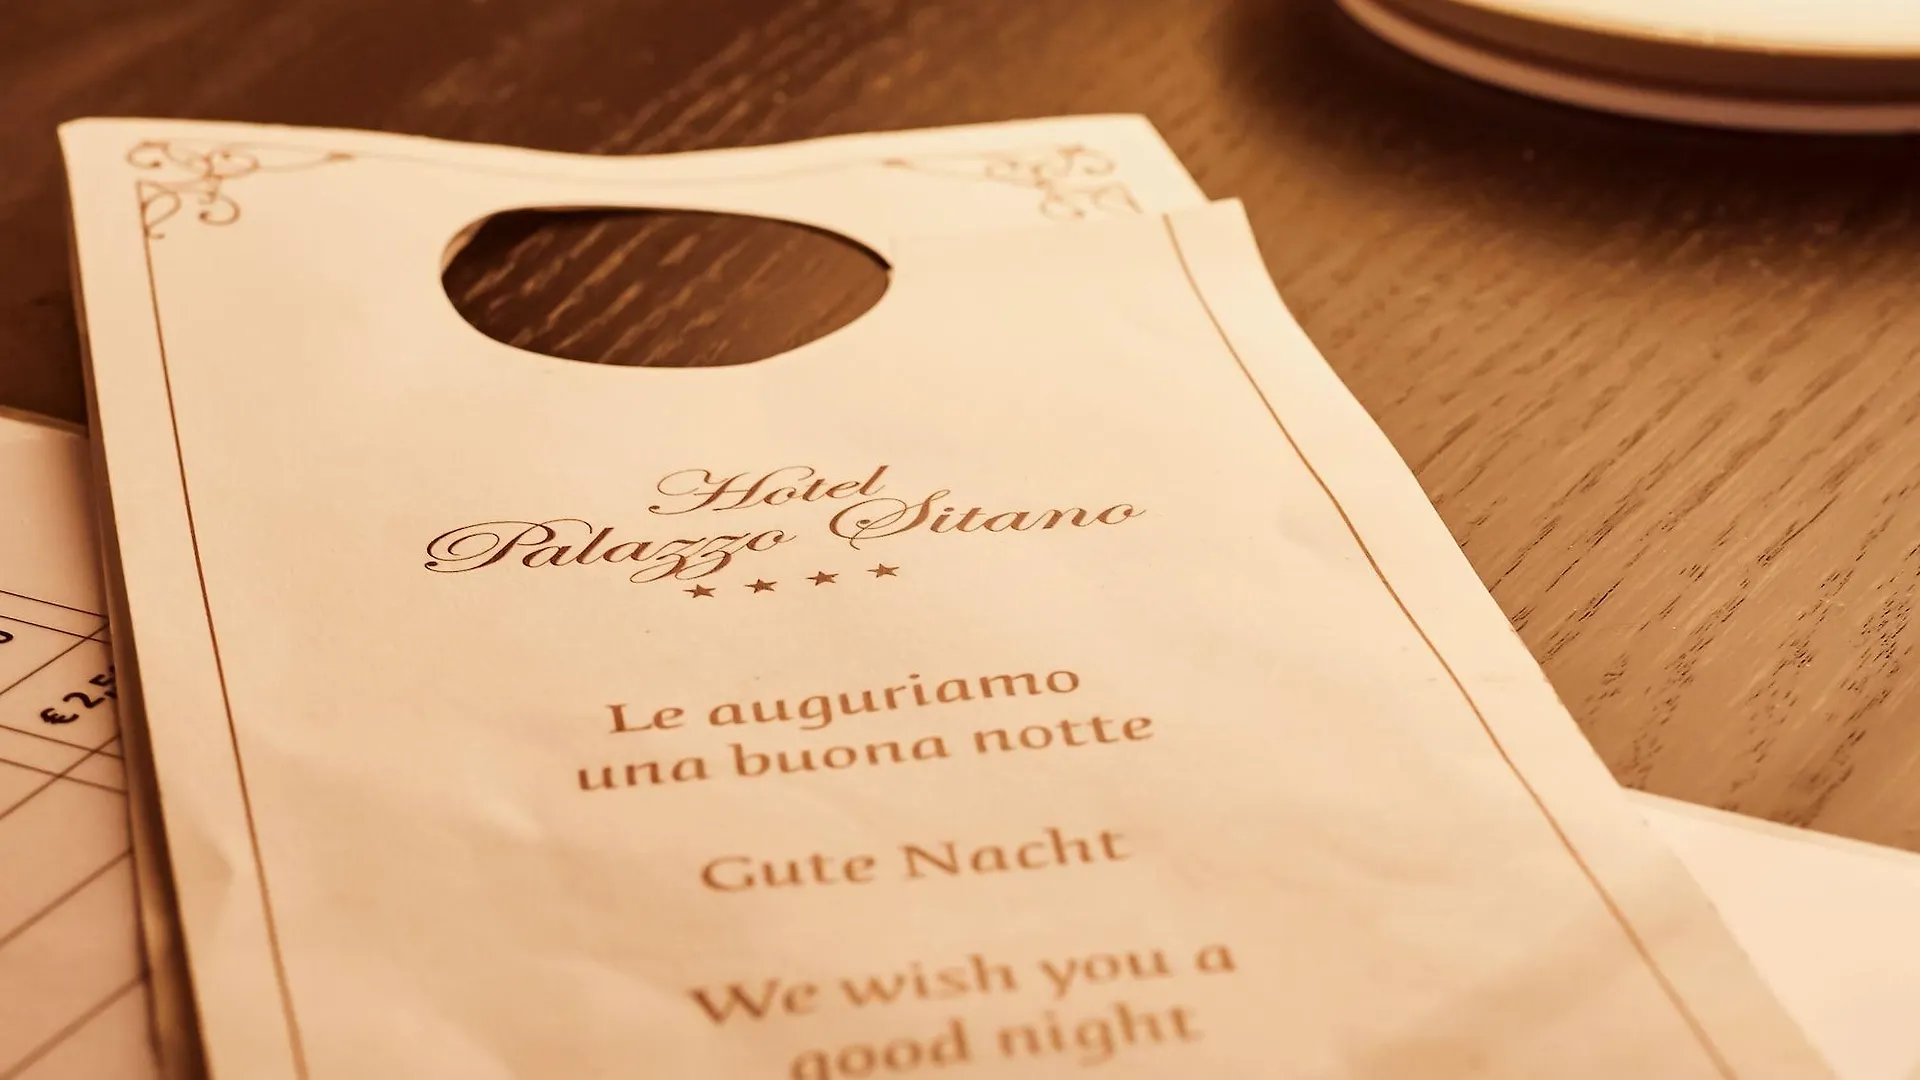 Hotel
Palazzo Sitano
Le auguriamo
una buona notte
Gute Nacht
We wish you a
good night